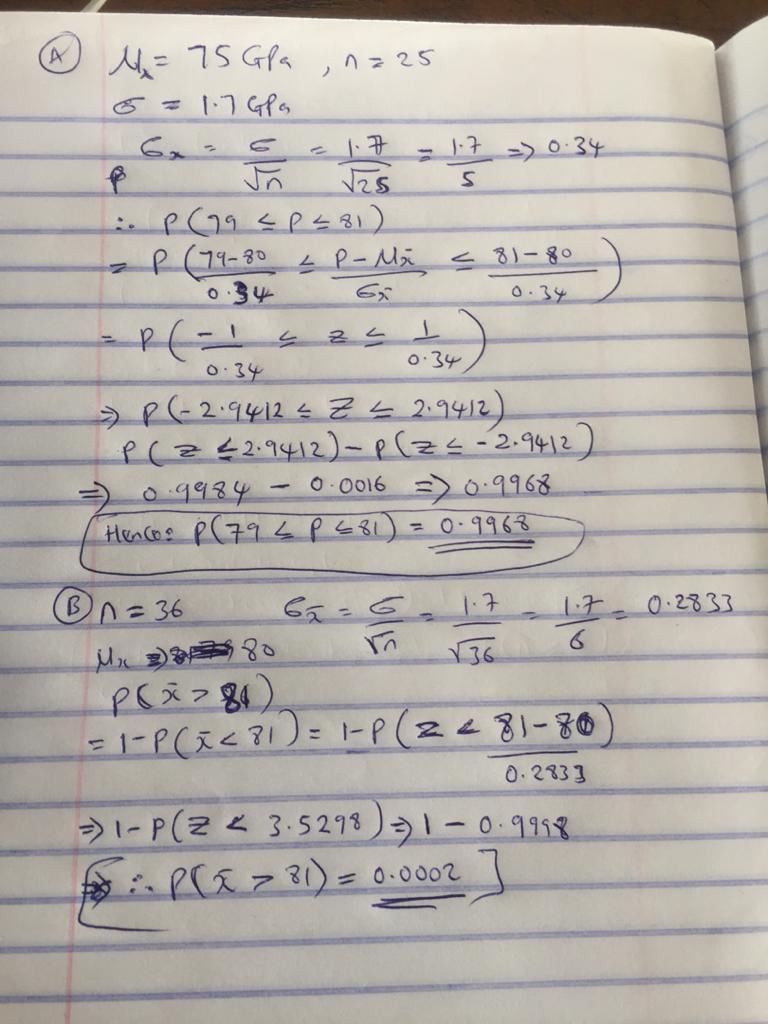 (A) Mx = 75 GPa , n = 25
σ = 1.7 GPa
σx = σ/√n = 1.7/√25 = 1.7/5 => 0.34
∴ P(79 ≤ P ≤ 81)
= P(79-80/0.34 ≤ P-Mx̄/σx̄ ≤ 81-80/0.34)
= P(-1/0.34 ≤ z ≤ 1/0.34)
=> P(-2.9412 ≤ Z ≤ 2.9412)
P(Z ≤ 2.9412) - P(Z ≤ -2.9412)
=> 0.9984 - 0.0016 => 0.9968
Hence: P(79 ≤ P ≤ 81) = 0.9968
(B) n = 36 σx̄ = σ/√n = 1.7/√36 = 1.7/6 = 0.2833
Mx 80
P(x̄ > 81)
= 1-P(x̄ < 81) = 1-P(Z < 81-80/0.2833)
=> 1-P(Z < 3.5298) => 1 - 0.9998
∴ P(x̄ > 81) = 0.0002